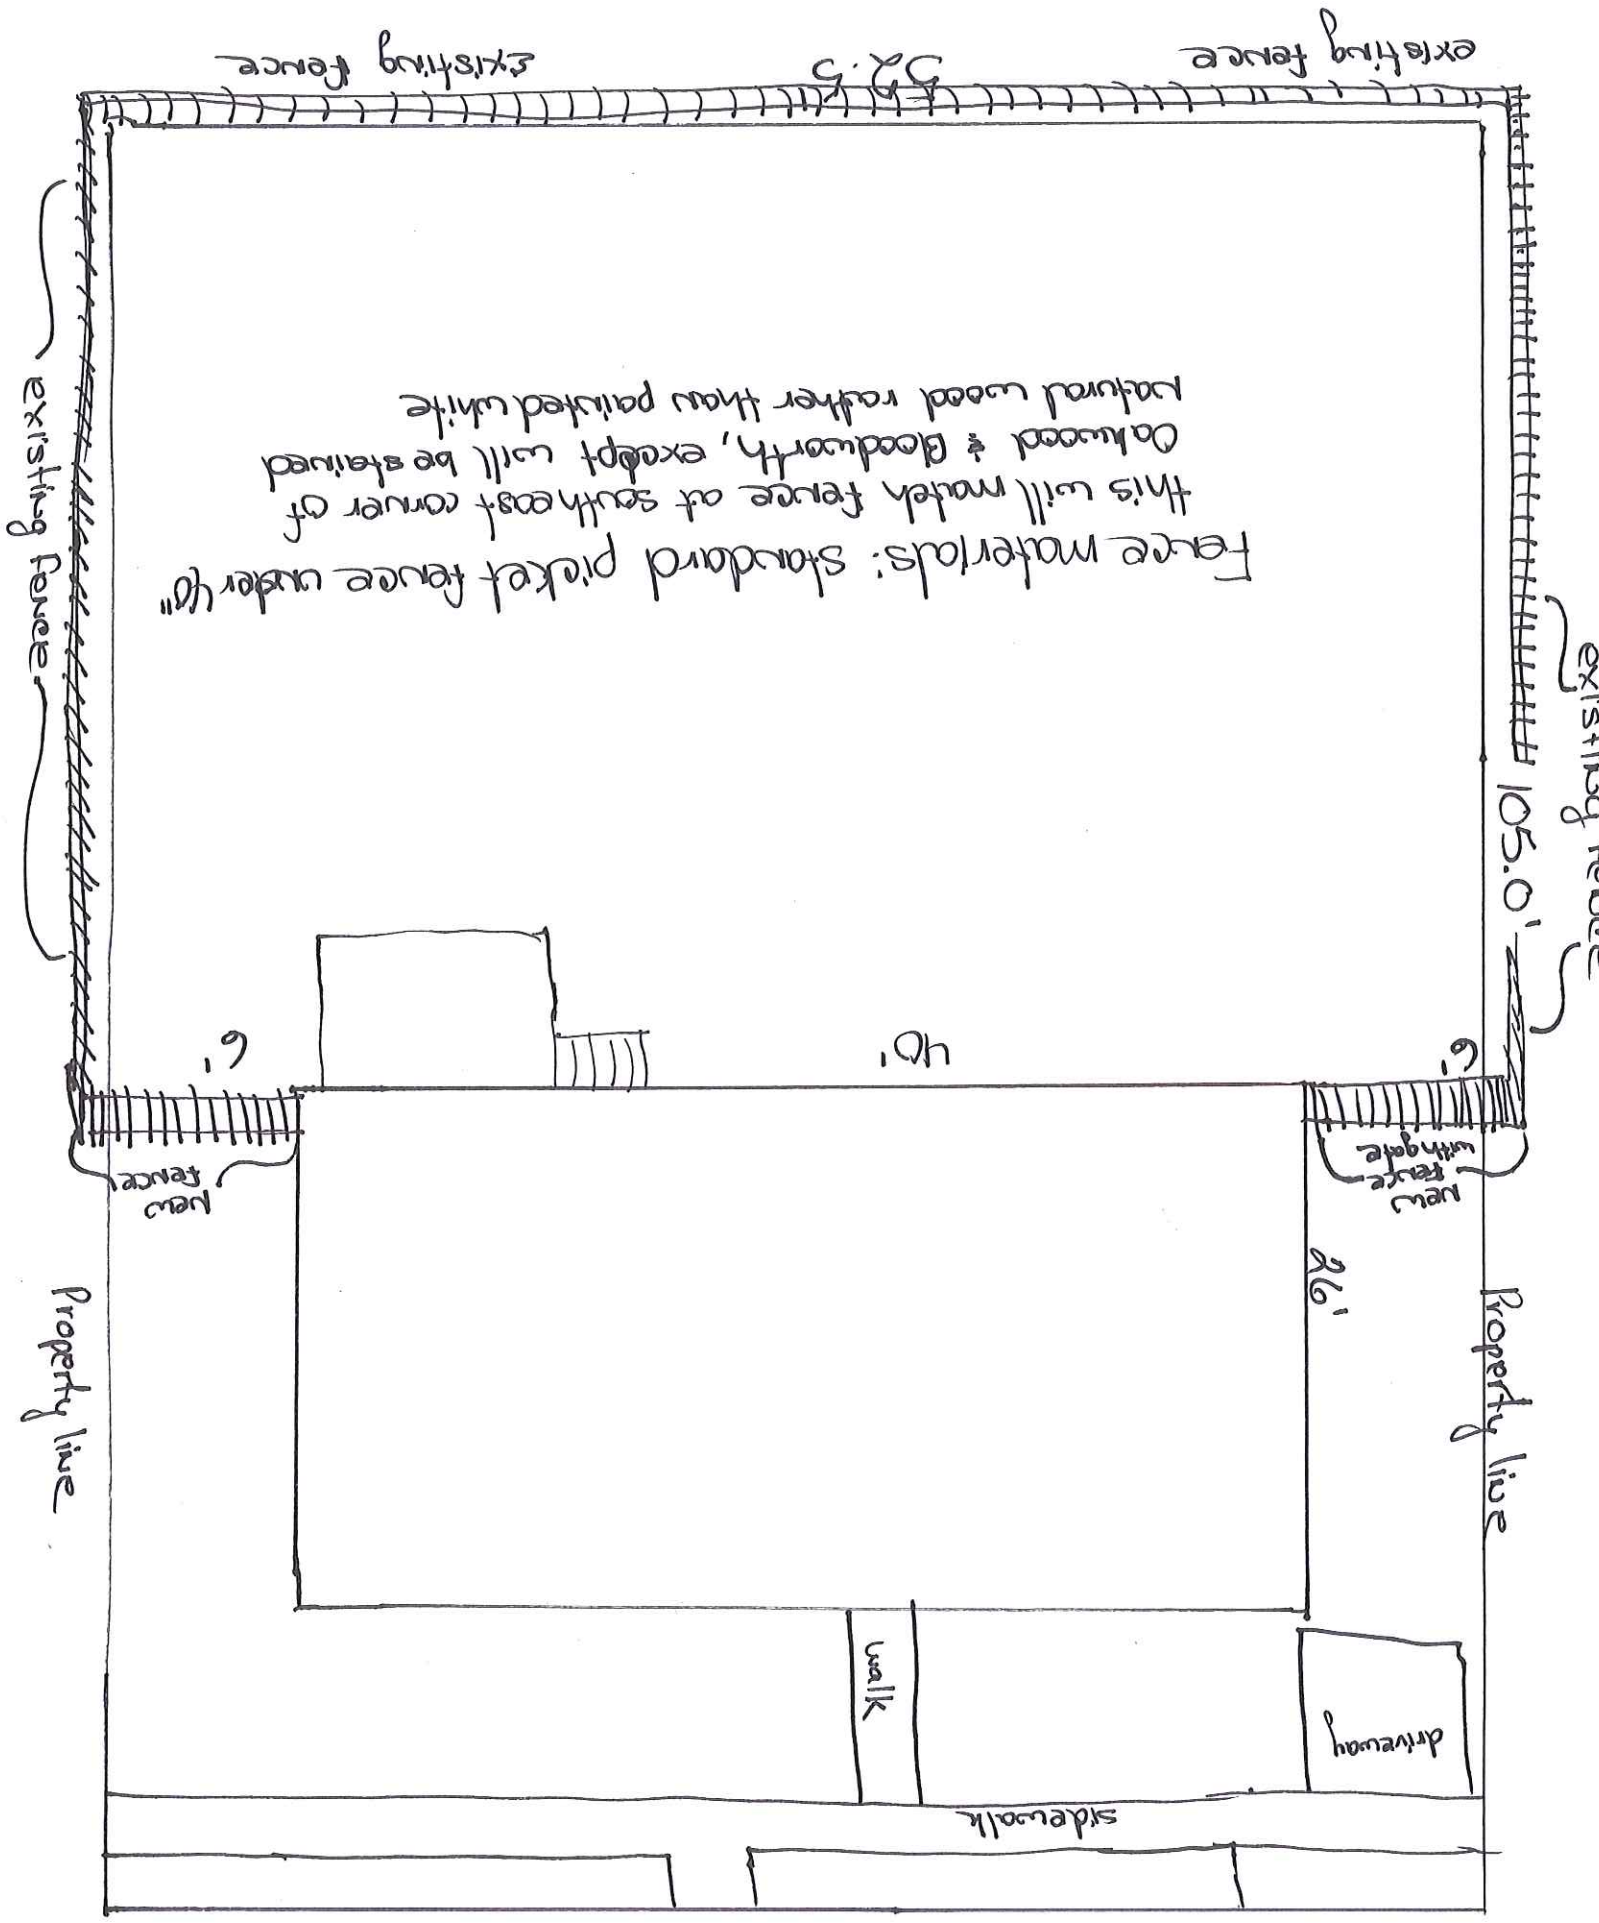 sidewalk
driveway
walk
Property line
Property line
26'
New
fence
with gate
New
fence
6'
40'
6'
105.0'
existing fence
existing fence
Fence materials: standard picket fence under 40"
this will match fence at southeast corner of
Oakwood & Bloodworth, except will be stained
natural wood rather than painted white
existing fence
52.5
existing fence